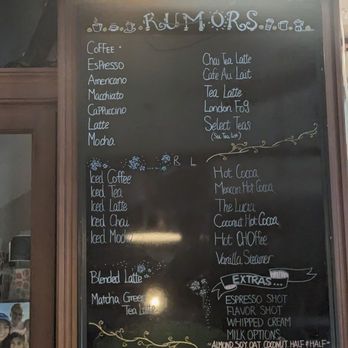 RUMORS
COFFEE
ESPRESSO
AMERICANO
MACCHIATO
CAPPUCCINO
LATTE
MOCHA
CHAI TEA LATTE
CAFE AU LAIT
TEA LATTE
LONDON FOG
SELECT TEAS
(SEE TEA LIST)
R L
ICED COFFEE
ICED TEA
ICED LATTE
ICED CHAI
ICED MOCHA
HOT COCOA
MEXICAN HOT COCOA
THE LUCIA
COCONUT HOT COCOA
HOT CHOFFEE
VANILLA STEAMER
BLENDED LATTE
MATCHA GREEN
TEA LATTE
EXTRAS...
ESPRESSO SHOT
FLAVOR SHOT
WHIPPED CREAM
MILK OPTIONS
~ALMOND SOY OAT COCONUT HALF & HALF~